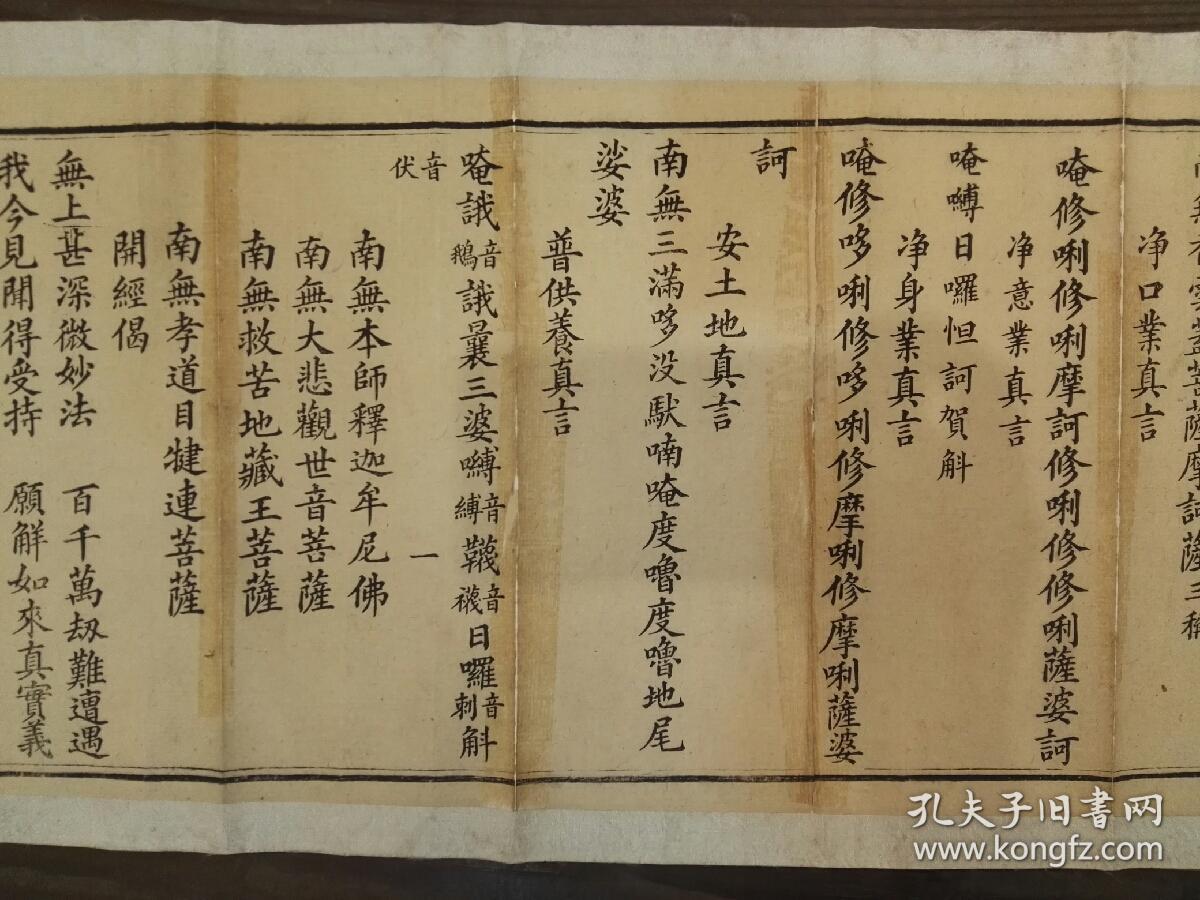 菩薩摩訶薩三
净口業真言
唵修唎修唎摩訶修唎修修唎薩婆訶
净意業真言
唵嚩日囉怛訶賀斛
净身業真言
唵修哆唎修哆唎修摩唎修摩唎薩婆
訶
安土地真言
南無三滿哆没馱喃唵度嚕度嚕地尾
娑婆
普供養真言
唵誐音鵝誐曩三婆嚩音縛韈音襪日囉音刺斛
音伏 一
南無本師釋迦牟尼佛
南無大悲觀世音菩薩
南無救苦地藏王菩薩
南無孝道目犍連菩薩
開經偈
無上甚深微妙法 百千萬劫難遭遇
我今見聞得受持 願解如來真實義
孔夫子旧书网
www.kongfz.com